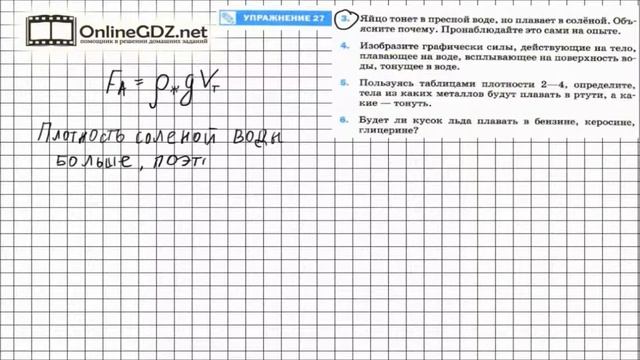 OnlineGDZ.net
помощник в решении домашних заданий
УПРАЖНЕНИЕ 27
3. Яйцо тонет в пресной воде, но плавает в солёной. Объ-
ясните почему. Пронаблюдайте это сами на опыте.
4. Изобразите графически силы, действующие на тело,
плавающее на воде, всплывающее на поверхность во-
ды, тонущее в воде.
5. Пользуясь таблицами плотности 2—4, определите,
тела из каких металлов будут плавать в ртути, а ка-
кие — тонуть.
6. Будет ли кусок льда плавать в бензине, керосине,
глицерине?
FА = ρж g Vт
Плотность соленой воды
больше, поэт